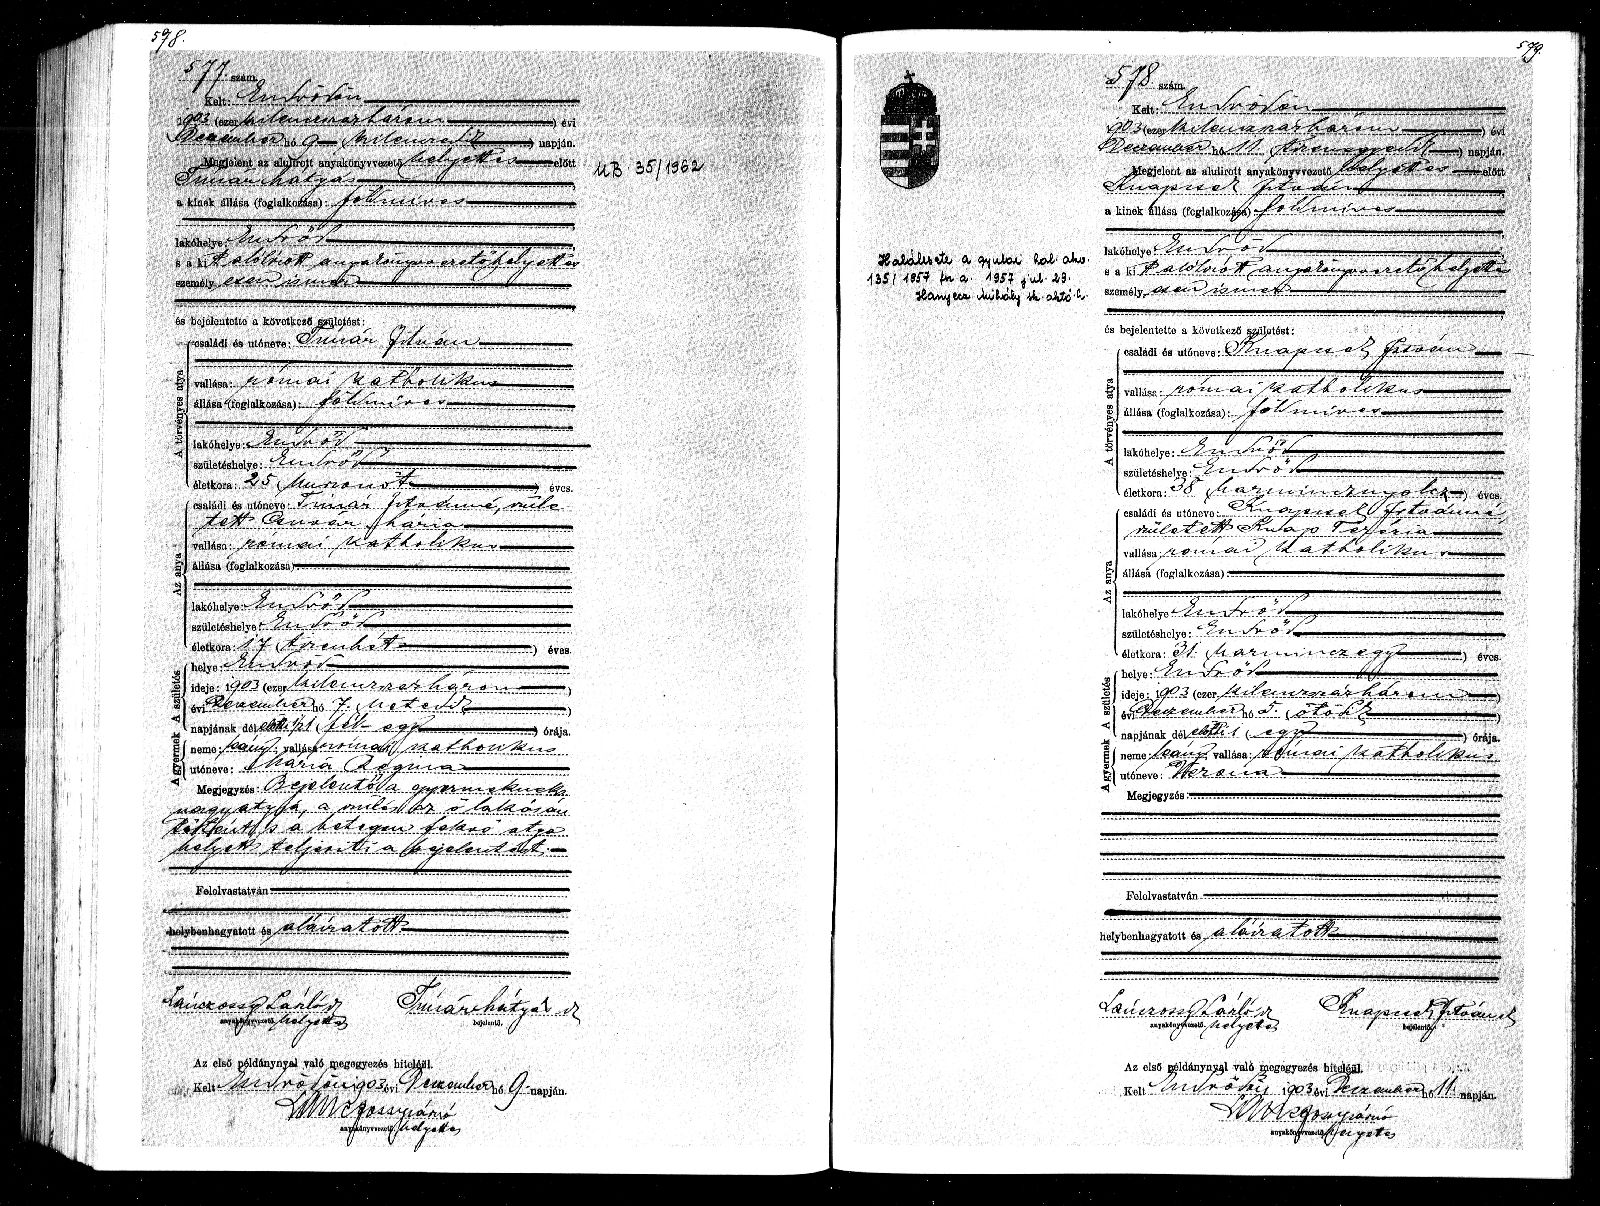 598.
577. szám.
Kelt: Endrődön
1903 (ezer kilenczszázhárom) évi
Deczember hó 9 (kilenczedik) napján.
Megjelent az alulirott anyakönyvvezető helyettes előtt
Tímár Mátyás
a kinek állása (foglalkozása): földmíves
lakóhelye: Endrőd
s a kit alólírott anyakönyvvezető helyettes
személyesen ismer
és bejelentette a következő születést:
A törvényes atya
családi és utóneve: Tímár István
vallása: római katholikus
állása (foglalkozása): földmíves
lakóhelye: Endrőd
születéshelye: Endrőd
életkora: 25 (huszonöt) éves.
Az anya
családi és utóneve: Tímár Istvánné, szüle
tett Mária
vallása: római katholikus
állása (foglalkozása)
lakóhelye: Endrőd
születéshelye: Endrőd
életkora: 17 (tizenhét) éves.
A születés
helye: Endrőd
ideje: 1903 (ezer kilenczszázhárom)
évi Deczember hó 7. (hetedik)
napjának dél előtti ½1 (fél egy) órája.
A gyermek
neme: leány; vallása: római katholikus
utóneve: Mária Regina
Megjegyzés: Bejelentő a gyermeknek
nagyatyja, a szülés az ő lakásán
történt s a betegen fekvő atya
helyett teljesíti a bejelentést.
Felolvastatván
helybenhagyatott és aláíratott
Lánczossy László Tímár Mátyás
anyakönyvvezető. helyettes bejelentő.
Az első példánynyal való megegyezés hiteléül.
Kelt Endrődön 1903 évi Deczember hó 9 napján.
anyakönyvvezető helyettes
UB 35/1962
579.
578. szám.
Kelt: Endrődön
1903 (ezer kilenczszázhárom) évi
Deczember hó 11. (tizenegyedik) napján.
Megjelent az alulirott anyakönyvvezető helyettes előtt
Knapcsek István
a kinek állása (foglalkozása): földmíves
lakóhelye: Endrőd
s a kit alólírott anyakönyvvezető helyettes
személyesen ismer
és bejelentette a következő születést:
A törvényes atya
családi és utóneve: Knapcsek István
vallása: római katholikus
állása (foglalkozása): földmíves
lakóhelye: Endrőd
születéshelye: Endrőd
életkora: 38 (harmincznyolcz) éves.
Az anya
családi és utóneve: Knapcsek Istvánné,
született Knap Terézia
vallása: római katholikus
állása (foglalkozása):
lakóhelye: Endrőd
születéshelye: Endrőd
életkora: 31 (harminczegy) éves.
A születés
helye: Endrőd
ideje: 1903 (ezer kilenczszázhárom)
évi Deczember hó 5. (ötödik)
napjának dél előtti 1 (egy) órája.
A gyermek
neme: leány; vallása: római katholikus
utóneve: Verona
Megjegyzés:
Felolvastatván
helybenhagyatott és aláíratott
Lánczossy László Knapcsek István
anyakönyvvezető. helyettes bejelentő.
Az első példánynyal való megegyezés hiteléül.
Kelt Endrődön 1903 évi Deczember hó 11. napján.
anyakönyvvezető helyettes
Halálesete a gyulai hal. akv.
135/1957 fsz. a. 1957 júl. 29.
Hanyecz Mihály sk. aktó. h.